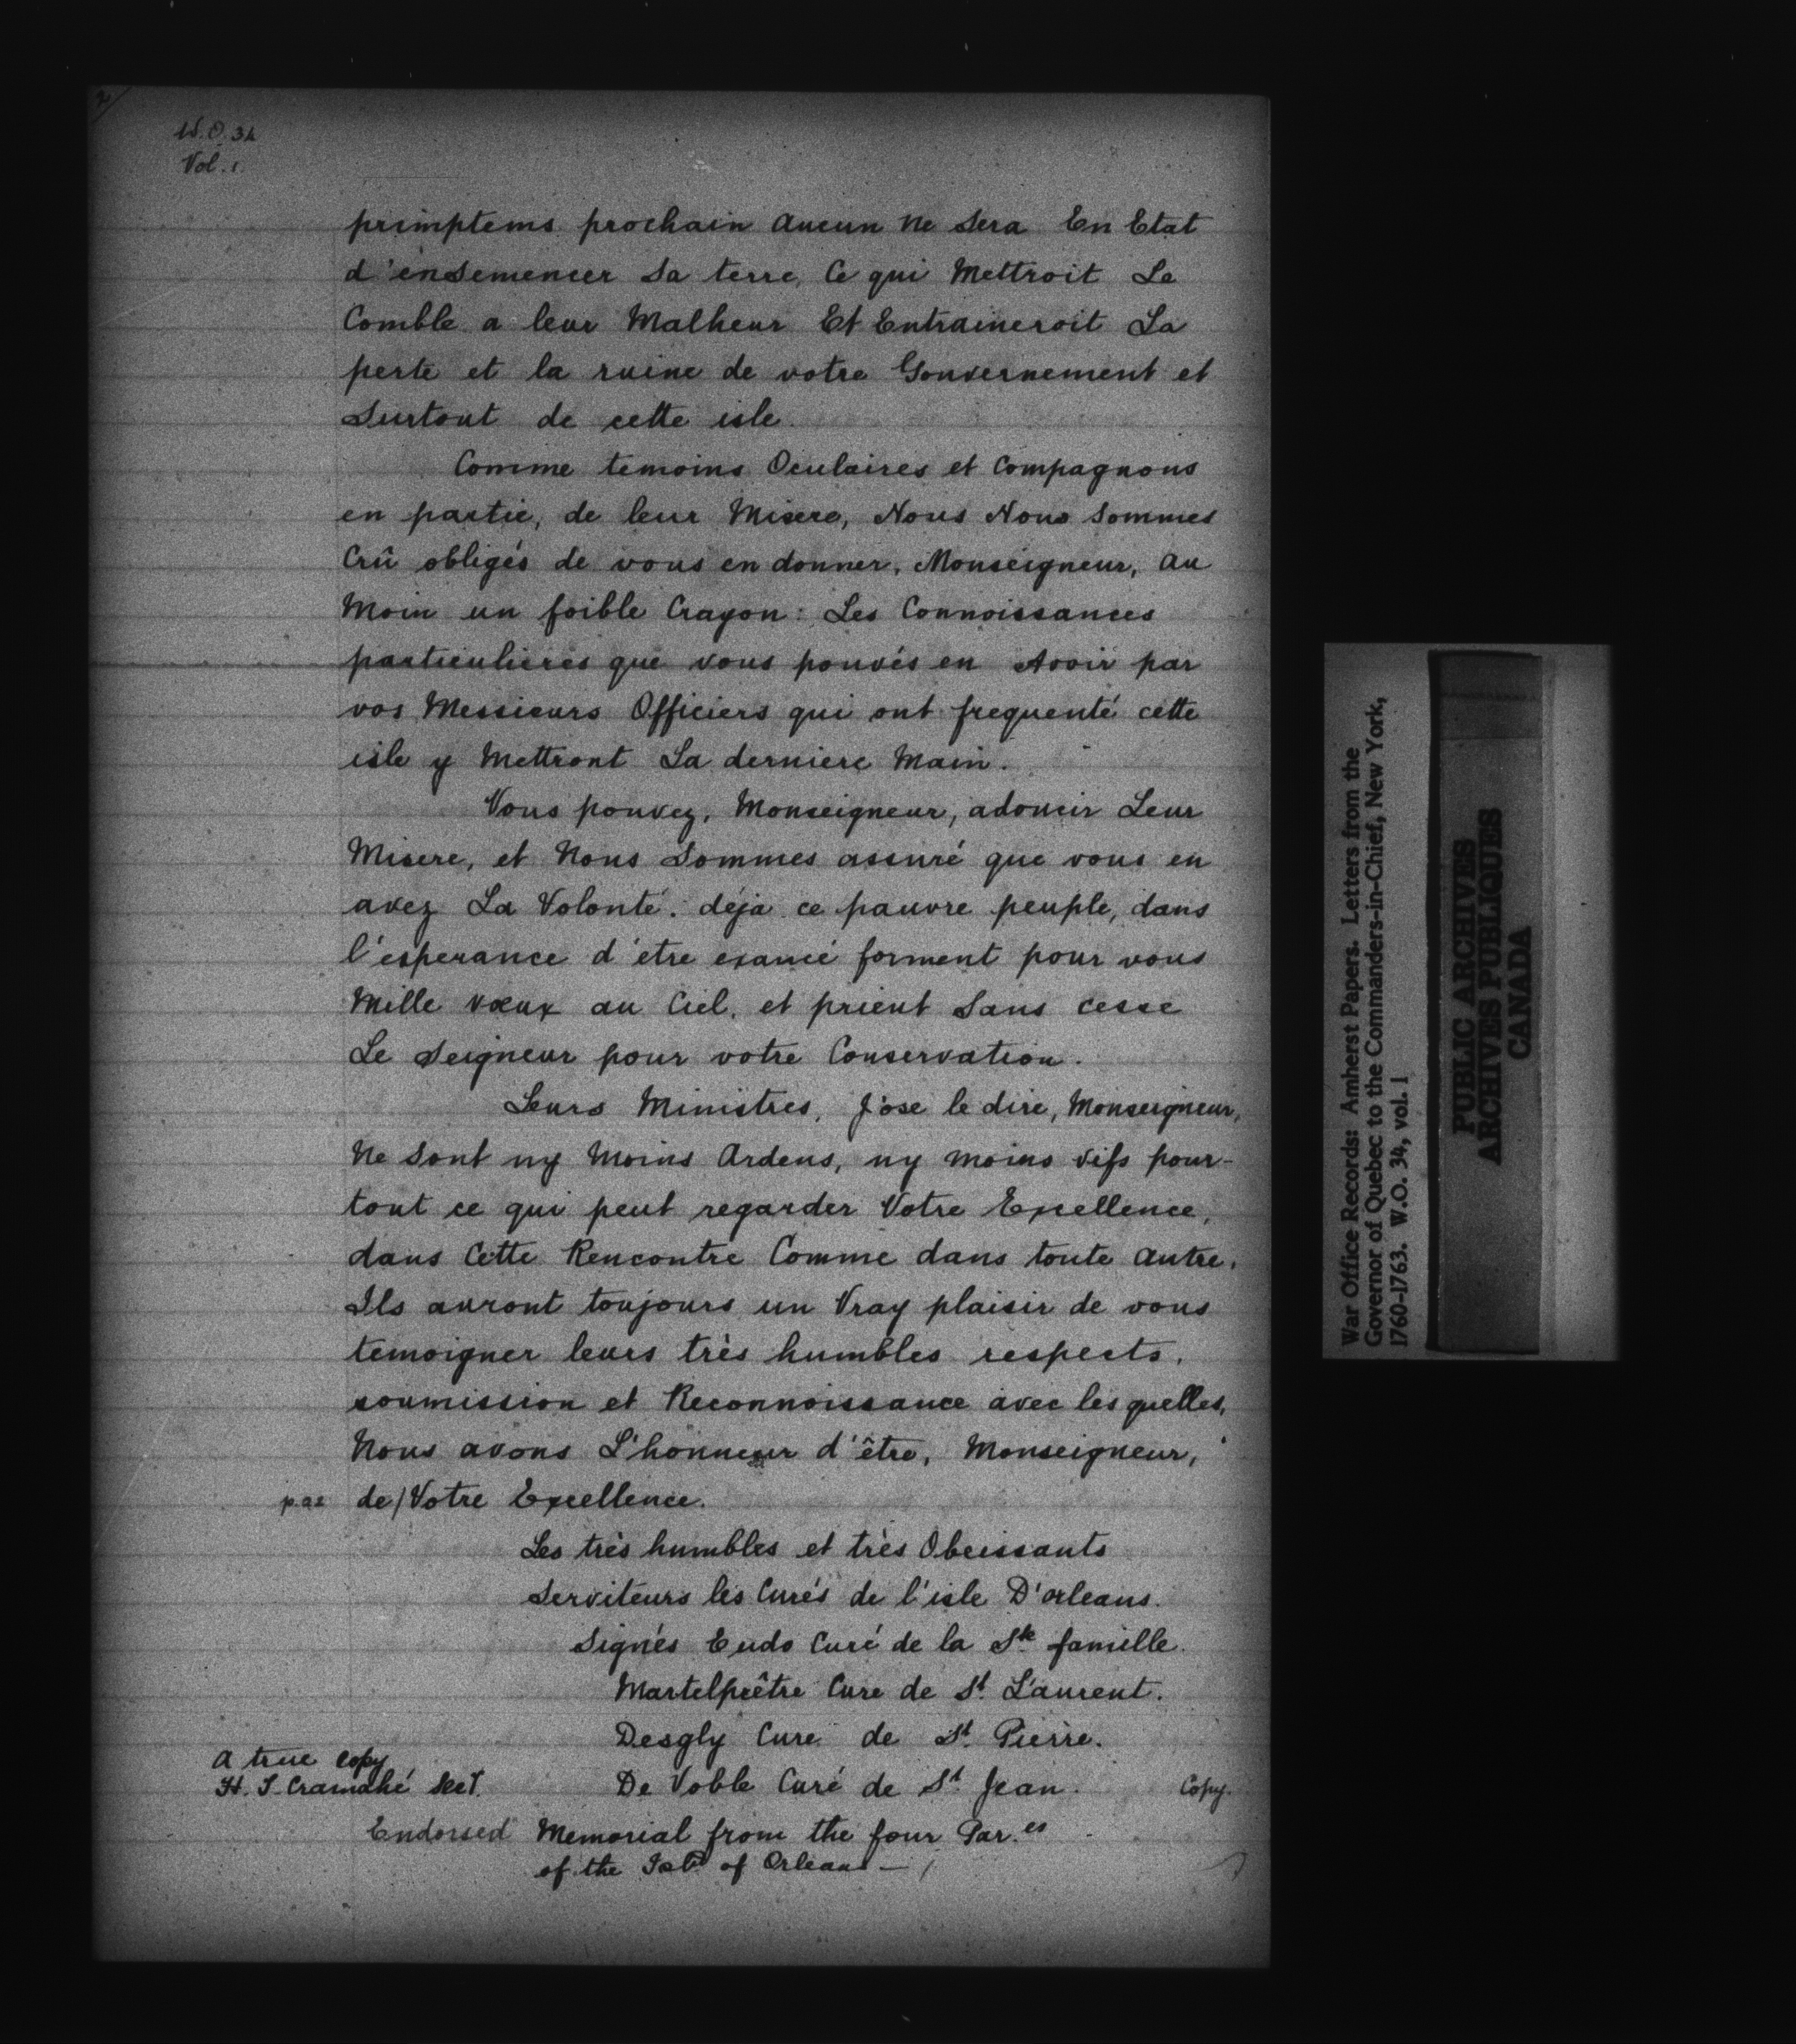 2/
W.O. 34
Vol. 1.
primptems prochain aucun ne sera En Etat
d'ensemencer sa terre, Ce qui Mettroit Le
Comble a leur Malheur Et Entraineroit La
perte et la ruine de votre Gouvernement et
Surtout de cette isle.
Comme temoins Oculaires et Compagnons
en partie, de leur Misere, Nous Nous Sommes
Crû obligés de vous en donner, Monseigneur, au
Moin un foible Crayon: Les Connoissances
particulieres que vous pouvés en Avoir par
vos Messieurs Officiers qui ont frequenté cette
isle y Mettront La derniere Main.
Vous pouvez, Monseigneur, adoucir Leur
Misere, et Nous Sommes assuré que vous en
avez La Volonté. déja ce pauvre peuple, dans
l'esperance d'etre exaucé forment pour vous
Mille vœux au Ciel, et prient Sans cesse
Le Seigneur pour votre Conservation.
Leurs Ministres, J'ose le dire, Monseigneur,
Ne Sont ny Moins Ardens, ny moins vifs pour-
tout ce qui peut regarder Votre Excellence,
dans Cette Rencontre Comme dans toute autre,
Ils auront toujours un Vray plaisir de vous
temoigner leurs très humbles respects,
soumission et Reconnoissance avec les quelles,
Nous avons L'honneur d'être, Monseigneur,
p. 22 de/Votre Excellence.
Les très humbles et très Obeissants
Serviteurs les Curés de l'isle D'orleans.
Signés Eudo Curé de la Ste famille.
Martelprêtre Cure de St. Laurent.
Desgly Cure de St. Pierre.
a true copy
H. T. Cramahé Sect. De Voble Curé de St. Jean. Copy.
Endorsed Memorial from the four Par.es
of the Isld of Orleans —
War Office Records: Amherst Papers. Letters from the
Governor of Quebec to the Commanders-in-Chief, New York,
1760-1763. W.O. 34, vol. 1
PUBLIC ARCHIVES
ARCHIVES PUBLIQUES
CANADA